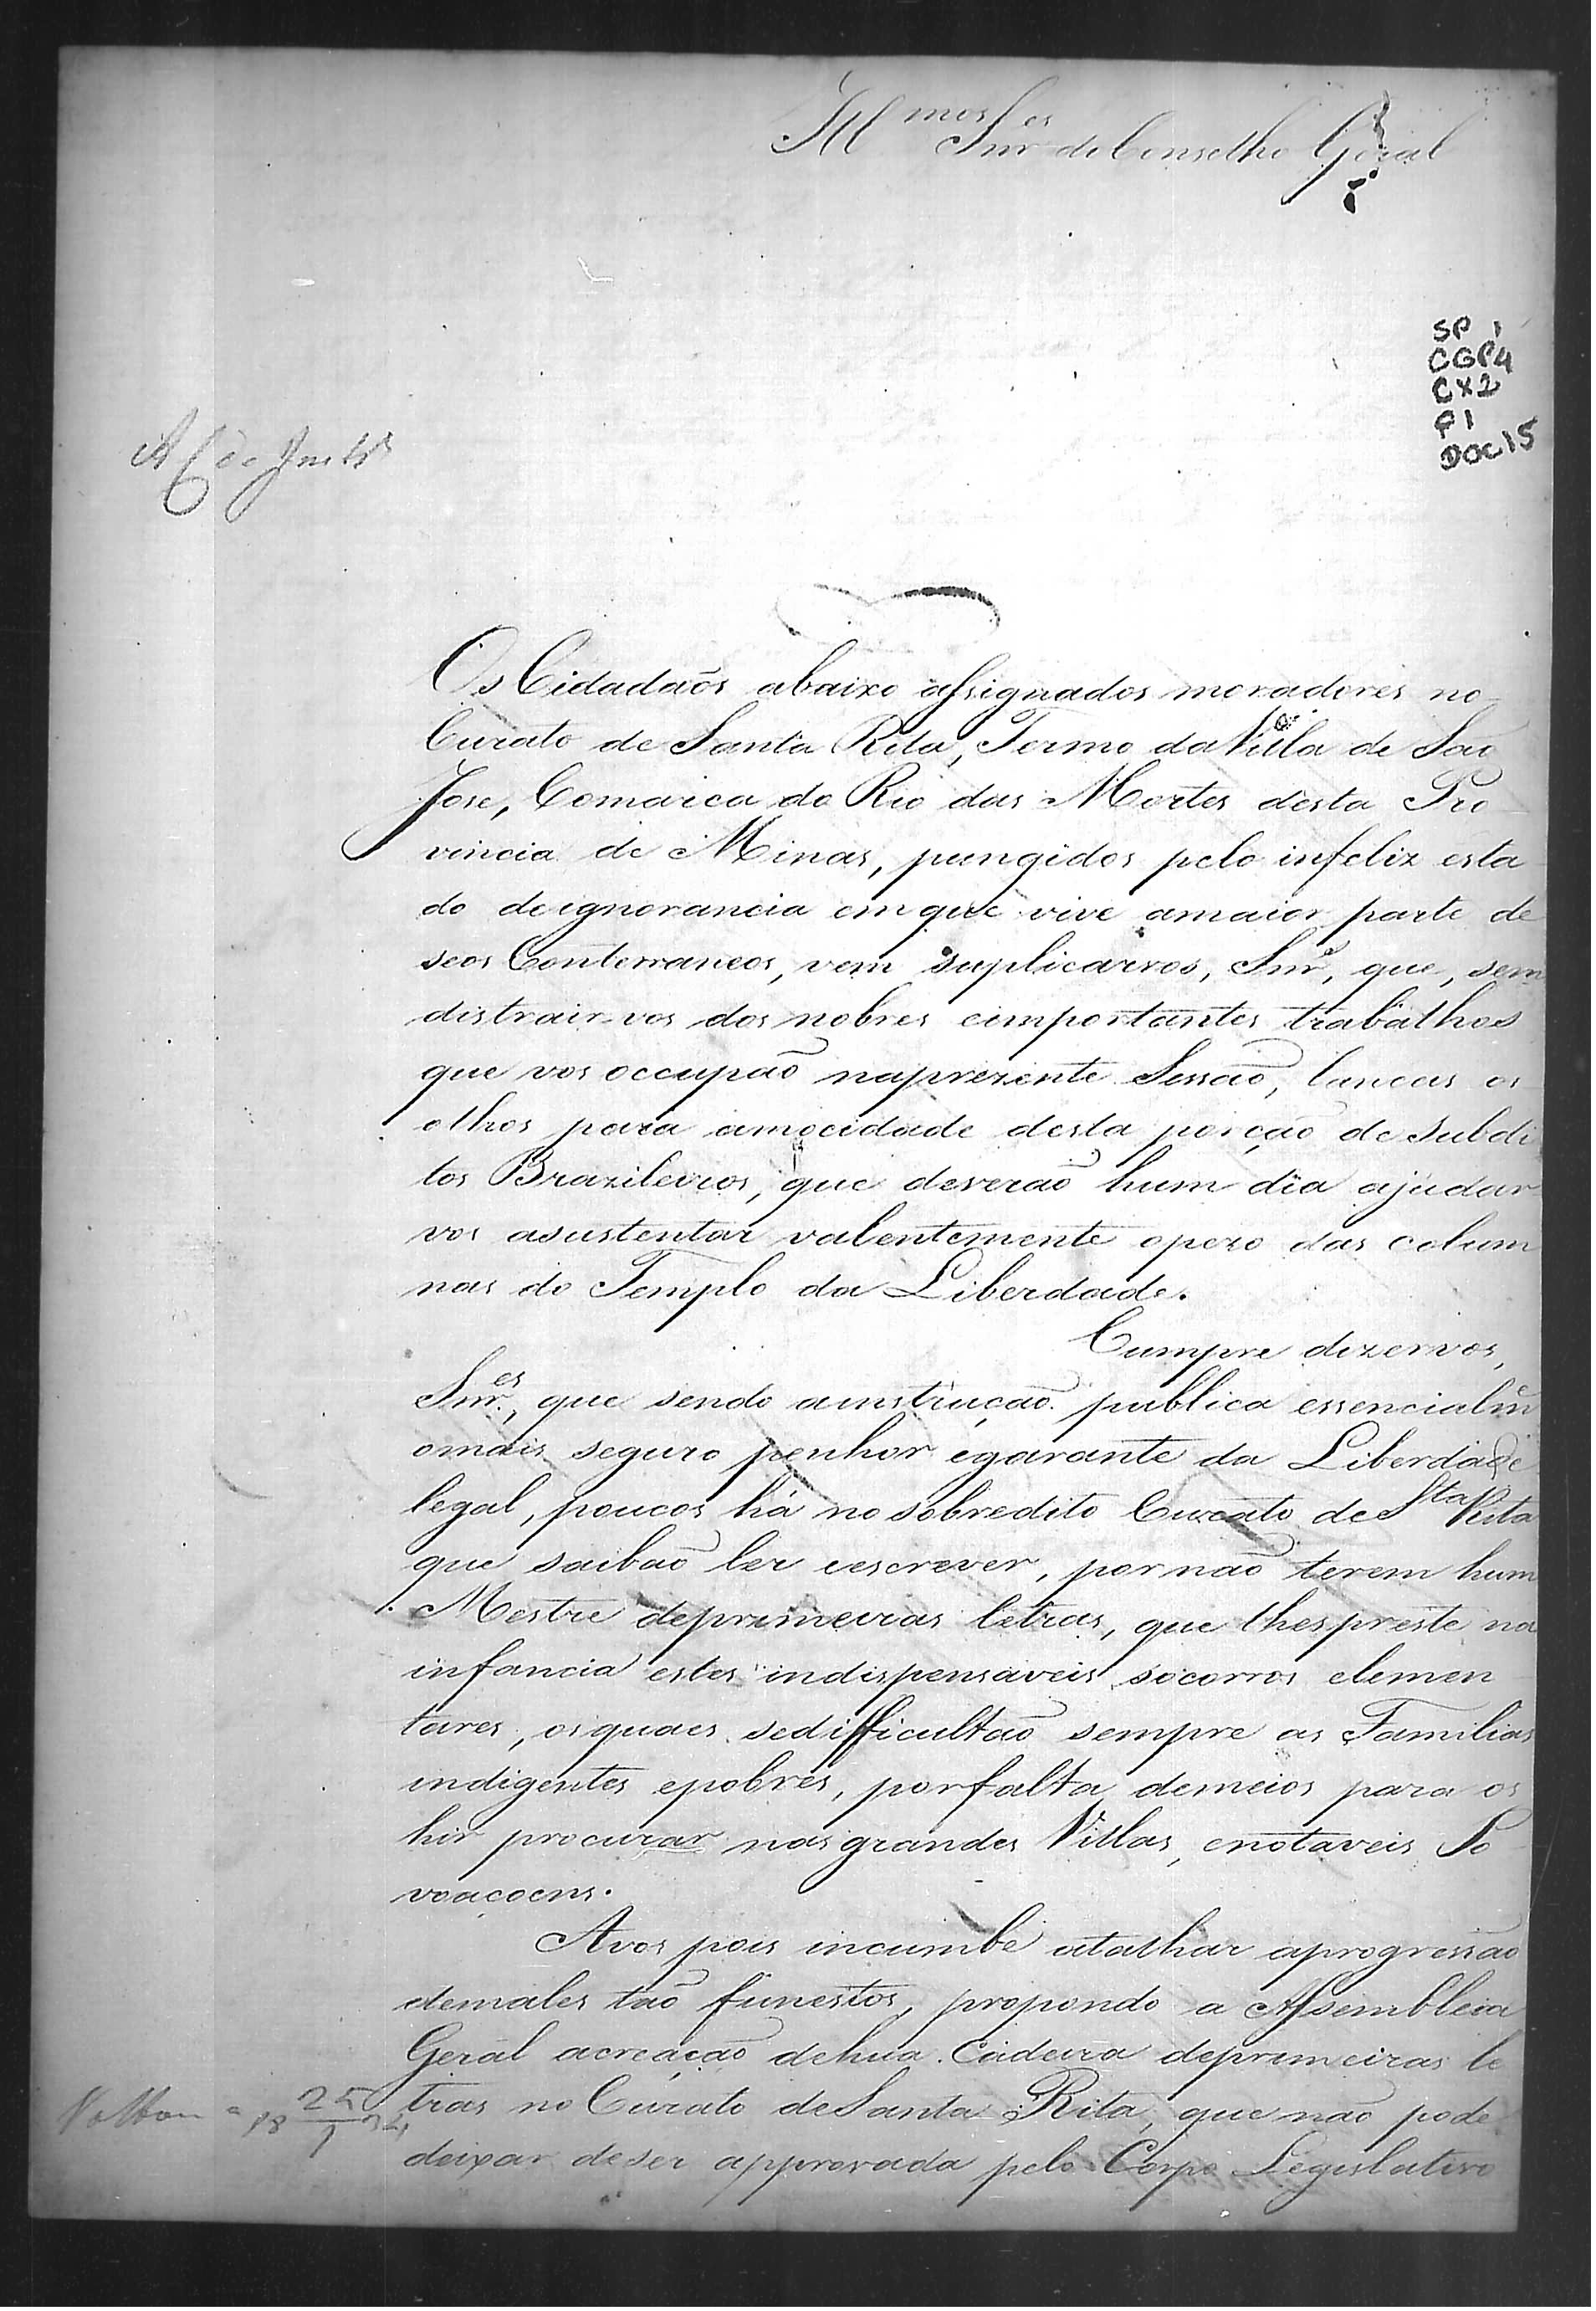 Ill.mos Snr.es do Conselho Geral
SP 1
CGP4
CX2
P1
DOC15
Os Cidadaõs abaixo assignados moradores no
Curato de Santa Rita, Termo da Villa de Saõ
Jose, Comarca do Rio das Mortes desta Pro
vincia de Minas, pungidos pelo infeliz esta
do de ignorancia em que vive a maior parte de
seos Conterraneos, vem suplicarvos, Snr.s, que, sem
distrair-vos dos nobres e importantes trabalhos
que vos occupaõ na prezente Sessaõ, lanceis os
olhos para a mocidade desta porçaõ de subdi
tos Brazileiros, que deveraõ hum dia ajudar
vos a sustentar valentemente o pezo das colum
nas do Templo da Liberdade.
Cumpre dizervos,
Snr.es, que sendo a instruçaõ publica essencialm.e
o mais seguro penhor e garante da Liberdade
legal, poucos há no sobredito Curato de Sta Rita
que saibaõ ler e escrever, por naõ terem hum
Mestre de primeiras letras, que lhes preste na
infancia estes indispensaveis socorros elemen
tares, os quaes se difficultaõ sempre as Familias
indigentes e pobres, por falta de meios para os
hir procurar nas grandes Villas, e notaveis Po
voaçoens.
A vos pois incumbe atalhar a progressaõ
de males taõ funestos, propondo a Assembleia
Geral a creaçaõ de hua Cadeira de primeiras le
tras no Curato de Santa Rita, que naõ pode
deixar de ser approvada pelo Corpo Legislativo